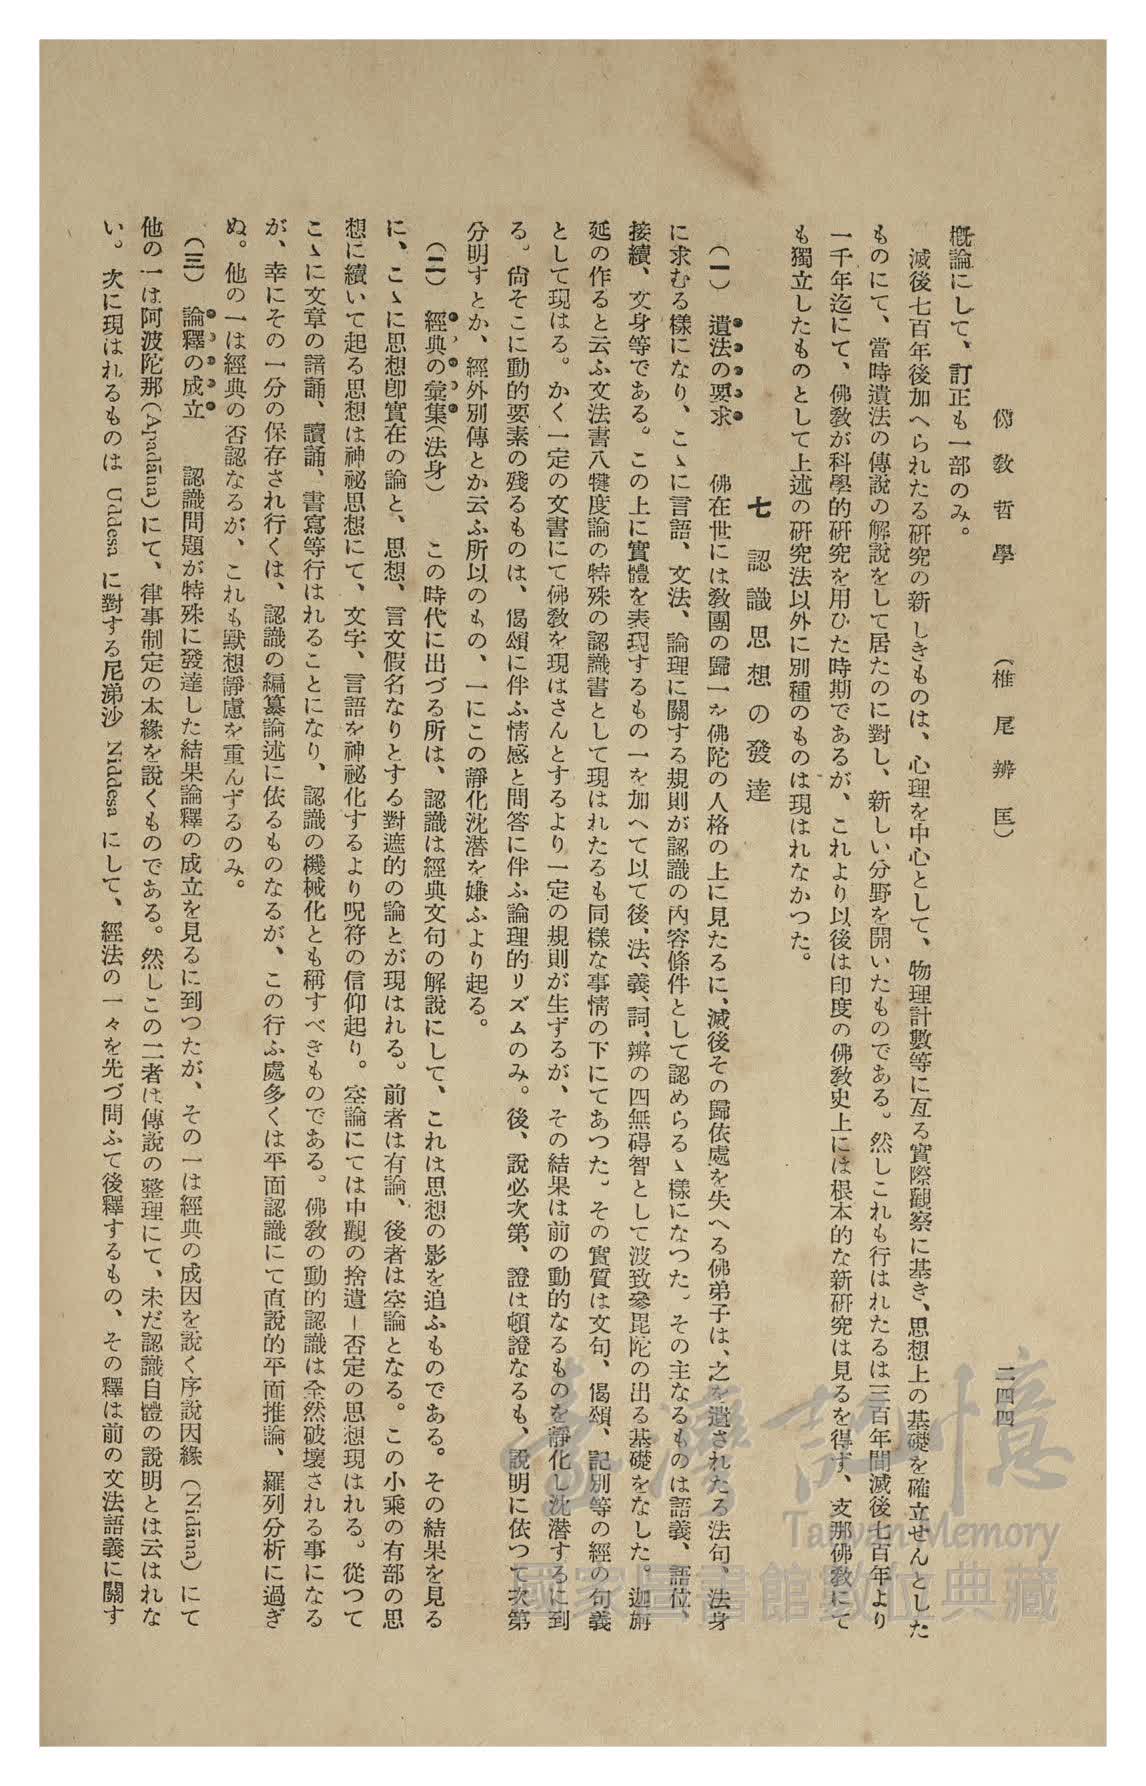 佛教哲學　（椎尾辨匡）　二四四
槪論にして、訂正も一部のみ。
滅後七百年後加へられたる硏究の新しきものは、心理を中心として、物理計數等に亙る實際觀察に基き、思想上の基礎を確立せんとした
ものにて、當時遺法の傳說の解說をして居たのに對し、新しい分野を開いたものである。然しこれも行はれたるは三百年間滅後七百年より
一千年迄にて、佛敎が科學的硏究を用ひた時期であるが、これより以後は印度の佛敎史上には根本的な新硏究は見るを得ず、支那佛敎にて
も獨立したものとして上述の硏究法以外に別種のものは現はれなかつた。
七　認識思想の發達
（一）　遺法の要求　佛在世には敎團の歸一を佛陀の人格の上に見たるに、滅後その歸依處を失へる佛弟子は、之を遺されたる法句、法身
に求むる樣になり、こゝに言語、文法、論理に關する規則が認識の內容條件として認めらるゝ樣になつた。その主なるものは語義、語位、
接續、文身等である。この上に實體を表現するもの一を加へて以て後、法、義、詞、辨の四無碍智として波致參毘陀の出る基礎をなした。迦旃
延の作ると云ふ文法書八犍度論の特殊の認識書として現はれたるも同樣な事情の下にてあつた。その實質は文句、偈頌、記別等の經の句義
として現はる。かく一定の文書にて佛敎を現はさんとするより一定の規則が生ずるが、その結果は前の動的なるものを靜化し沈潜するに到
る。尙そこに動的要素の殘るものは、偈頌に伴ふ情感と問答に伴ふ論理的リズムのみ。後、說必次第、證は頓證なるも、說明に依つて次第
分明すとか、經外別傳とか云ふ所以のもの、一にこの靜化沈潜を嫌ふより起る。
（二）　經典の彙集（法身）　この時代に出づる所は、認識は經典文句の解說にして、これは思想の影を追ふものである。その結果を見る
に、こゝに思想卽實在の論と、思想、言文假名なりとする對遮的の論とが現はれる。前者は有論、後者は空論となる。この小乘の有部の思
想に續いて起る思想は神祕思想にて、文字、言語を神祕化するより呪符の信仰起り。空論にては中觀の捨遺－否定の思想現はれる。從つて
こゝに文章の諳誦、讀誦、書寫等行はれることになり、認識の機械化とも稱すべきものである。佛敎の動的認識は全然破壞される事になる
が、幸にその一分の保存され行くは、認識の編纂論述に依るものなるが、この行ふ處多くは平面認識にて直說的平面推論、羅列分析に過ぎ
ぬ。他の一は經典の否認なるが、これも默想靜慮を重んずるのみ。
（三）　論釋の成立　認識問題が特殊に發達した結果論釋の成立を見るに到つたが、その一は經典の成因を說く序說因緣（Nidāna）にて
他の一は阿波陀那（Apadāna）にて、律事制定の本緣を說くものである。然しこの二者は傳說の整理にて、未だ認識自體の說明とは云はれな
い。次に現はれるものは Uddesa に對する尼涕沙 Niddesa にして、經法の一々を先づ問ふて後釋するもの、その釋は前の文法語義に關す
臺灣記憶
Taiwan Memory
國家圖書館數位典藏